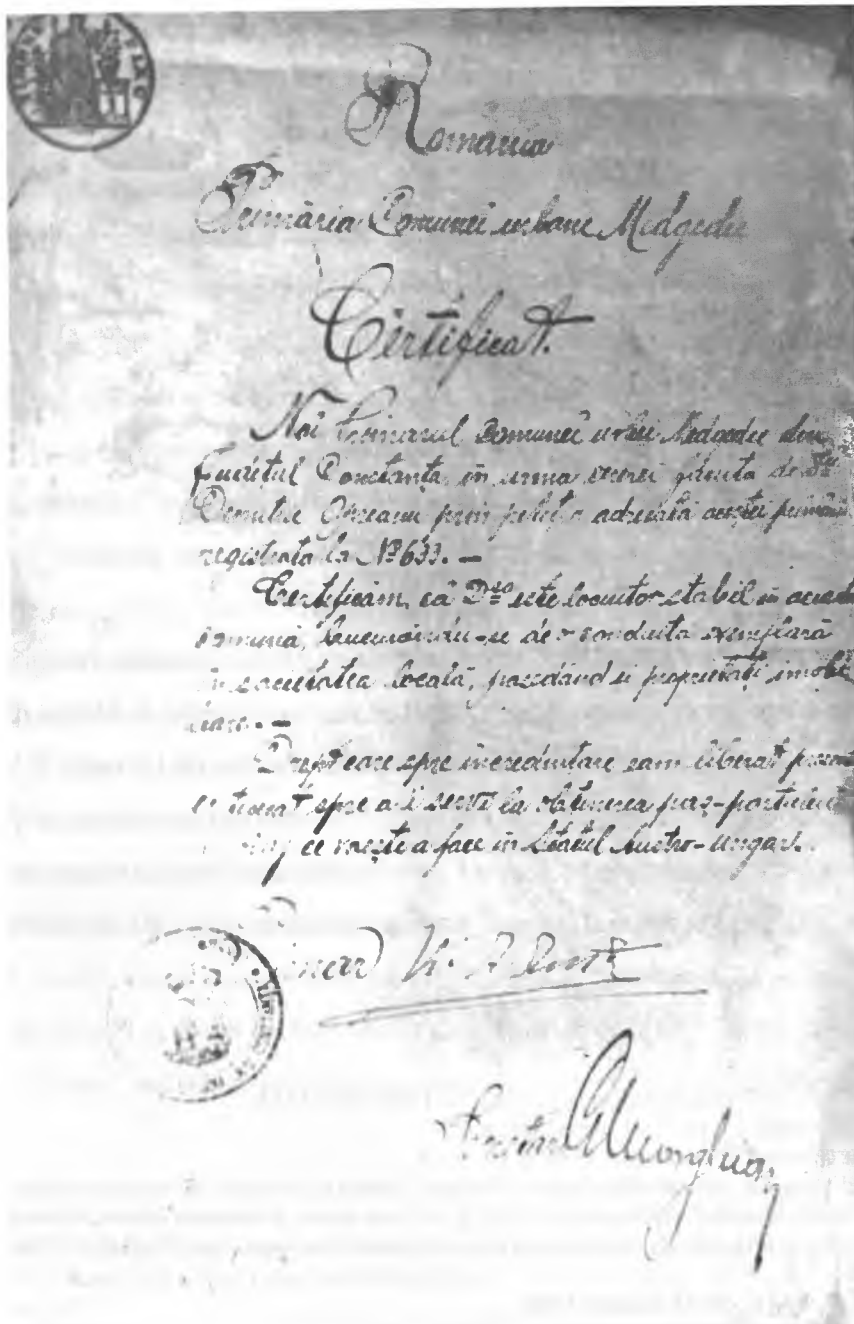 Romania
Primăria Comunei urbane Medgedie
Certificat.
Noi Primarul Comunei urbei Medgedie din
Județul Constanța, în urma cererei făcută de Dl
Dimitrie Opreanu prin petiția adresată acestei primării
registrată la No 633. —
Certificăm, că Dlui este locuitor stabil în această
comună, bucurându-se de o conduită exemplară
în societatea locală, posedând și proprietăți imobi
liare. —
Drept care spre incredințare sam liberat prezent
spre a-i servi la obținerea pas-portului
ce voește a face în Statul Austro-Ungar.
Primar